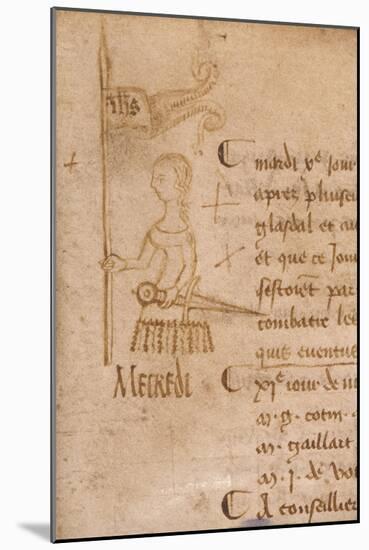 ihs
mardi x^e jour
apres pluseu
glasdal et au
et que ce Jou
sestoient par
combatre les
quis eventue
MECREDI
xj^e iour de m
m. g. cotin
m. gaillart
m. J. de vo
A conseillier